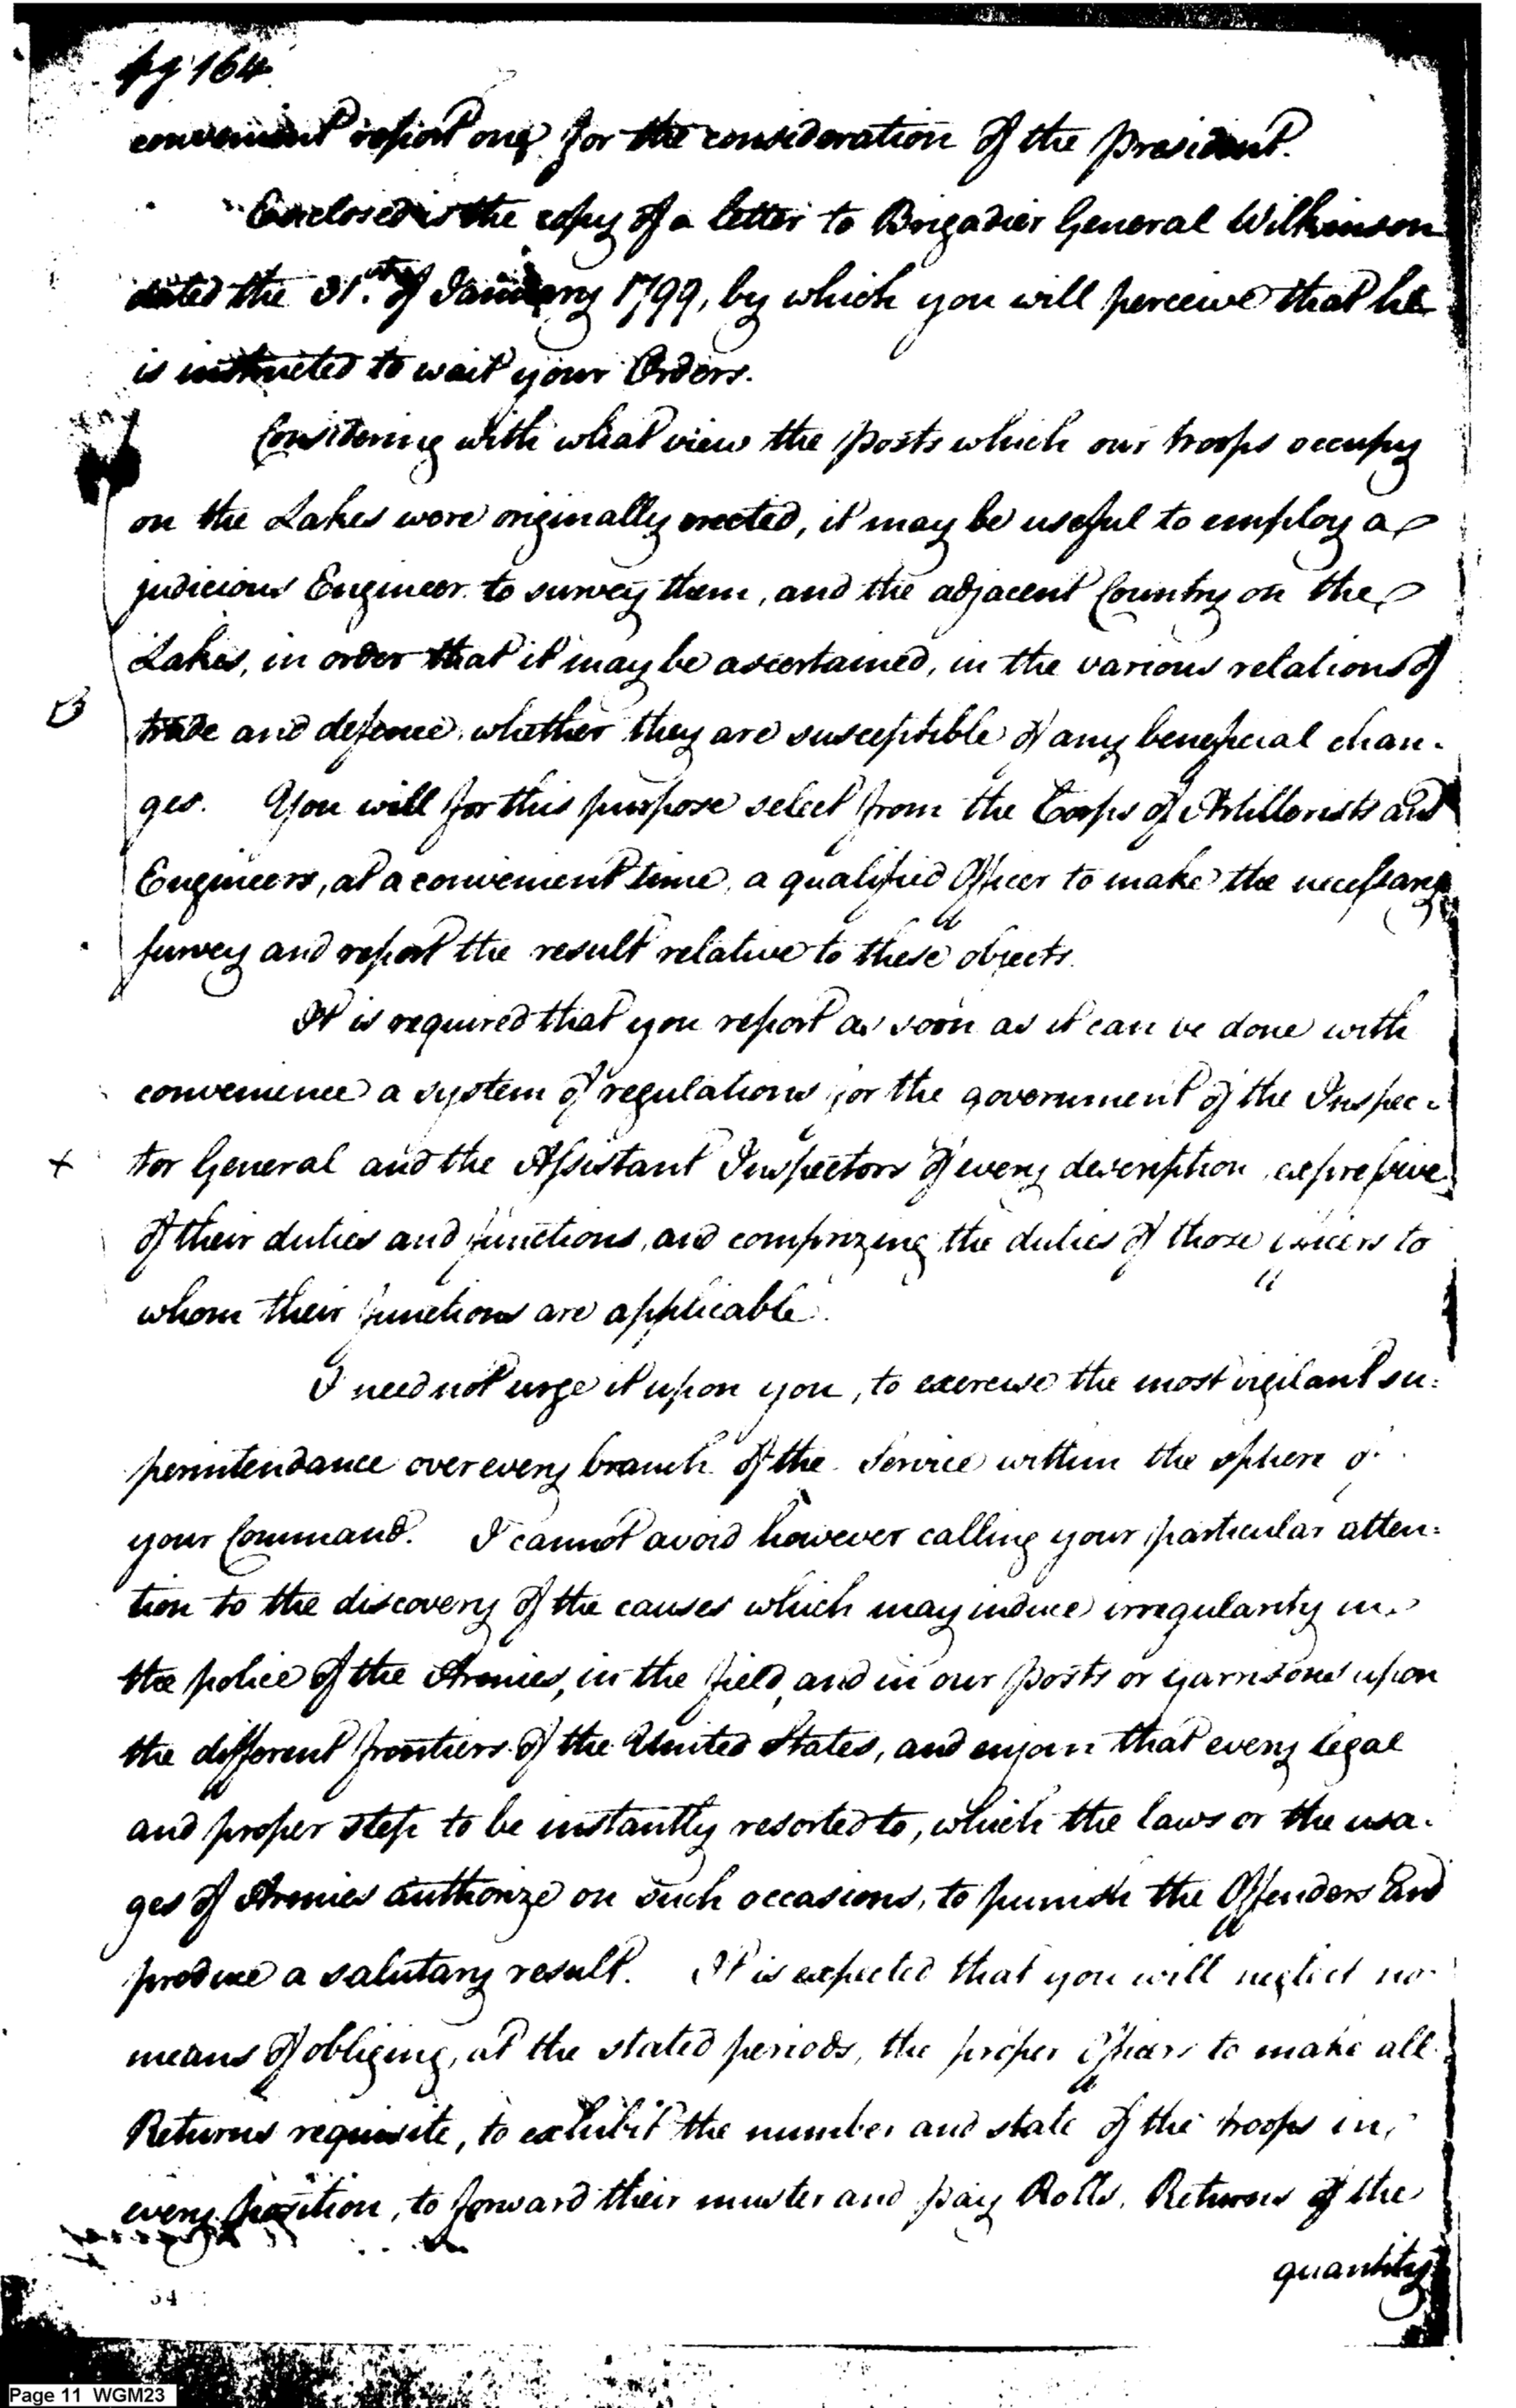 pg 164
convenient report one for the consideration of the President.
Enclosed is the copy of a letter to Brigadier General Wilkinson
dated the 31st. of January 1799, by which you will perceive that he
is instructed to wait your Orders.
Considering with what view the posts which our troops occupy
on the Lakes were originally erected, it may be useful to employ a
judicious Engineer to survey them, and the adjacent Country on the
Lakes, in order that it may be ascertained, in the various relations of
trade and defence, whether they are susceptible of any beneficial chan-
ges. You will for this purpose select from the Corps of Artillerists and
Engineers, at a convenient time, a qualified Officer to make the necessary
survey and report the result relative to these objects.
It is required that you report as soon as it can be done with
convenience a system of regulations for the government of the Inspec-
+ tor General and the Assistant Inspectors of every description expressive
of their duties and functions, and comprizing the duties of those officers to
whom their functions are applicable.
I need not urge it upon you, to exercise the most vigilant su:
perintendance over every branch of the Service within the sphere of
your Command. I cannot avoid however calling your particular atten:
tion to the discovery of the causes which may induce irregularity in
the police of the Armies, in the field, and in our posts or garrisons upon
the different frontiers of the United States, and enjoin that every legal
and proper step to be instantly resorted to, which the laws or the usa-
ges of Armies authorize on such occasions, to punish the Offenders and
produce a salutary result. It is expected that you will neglect no
means of obliging, at the stated periods, the proper Officers to make all
Returns requisite, to exhibit the number and state of the troops in
every position, to forward their muster and pay Rolls, Returns of the
quantity
34
Page 11 WGM23